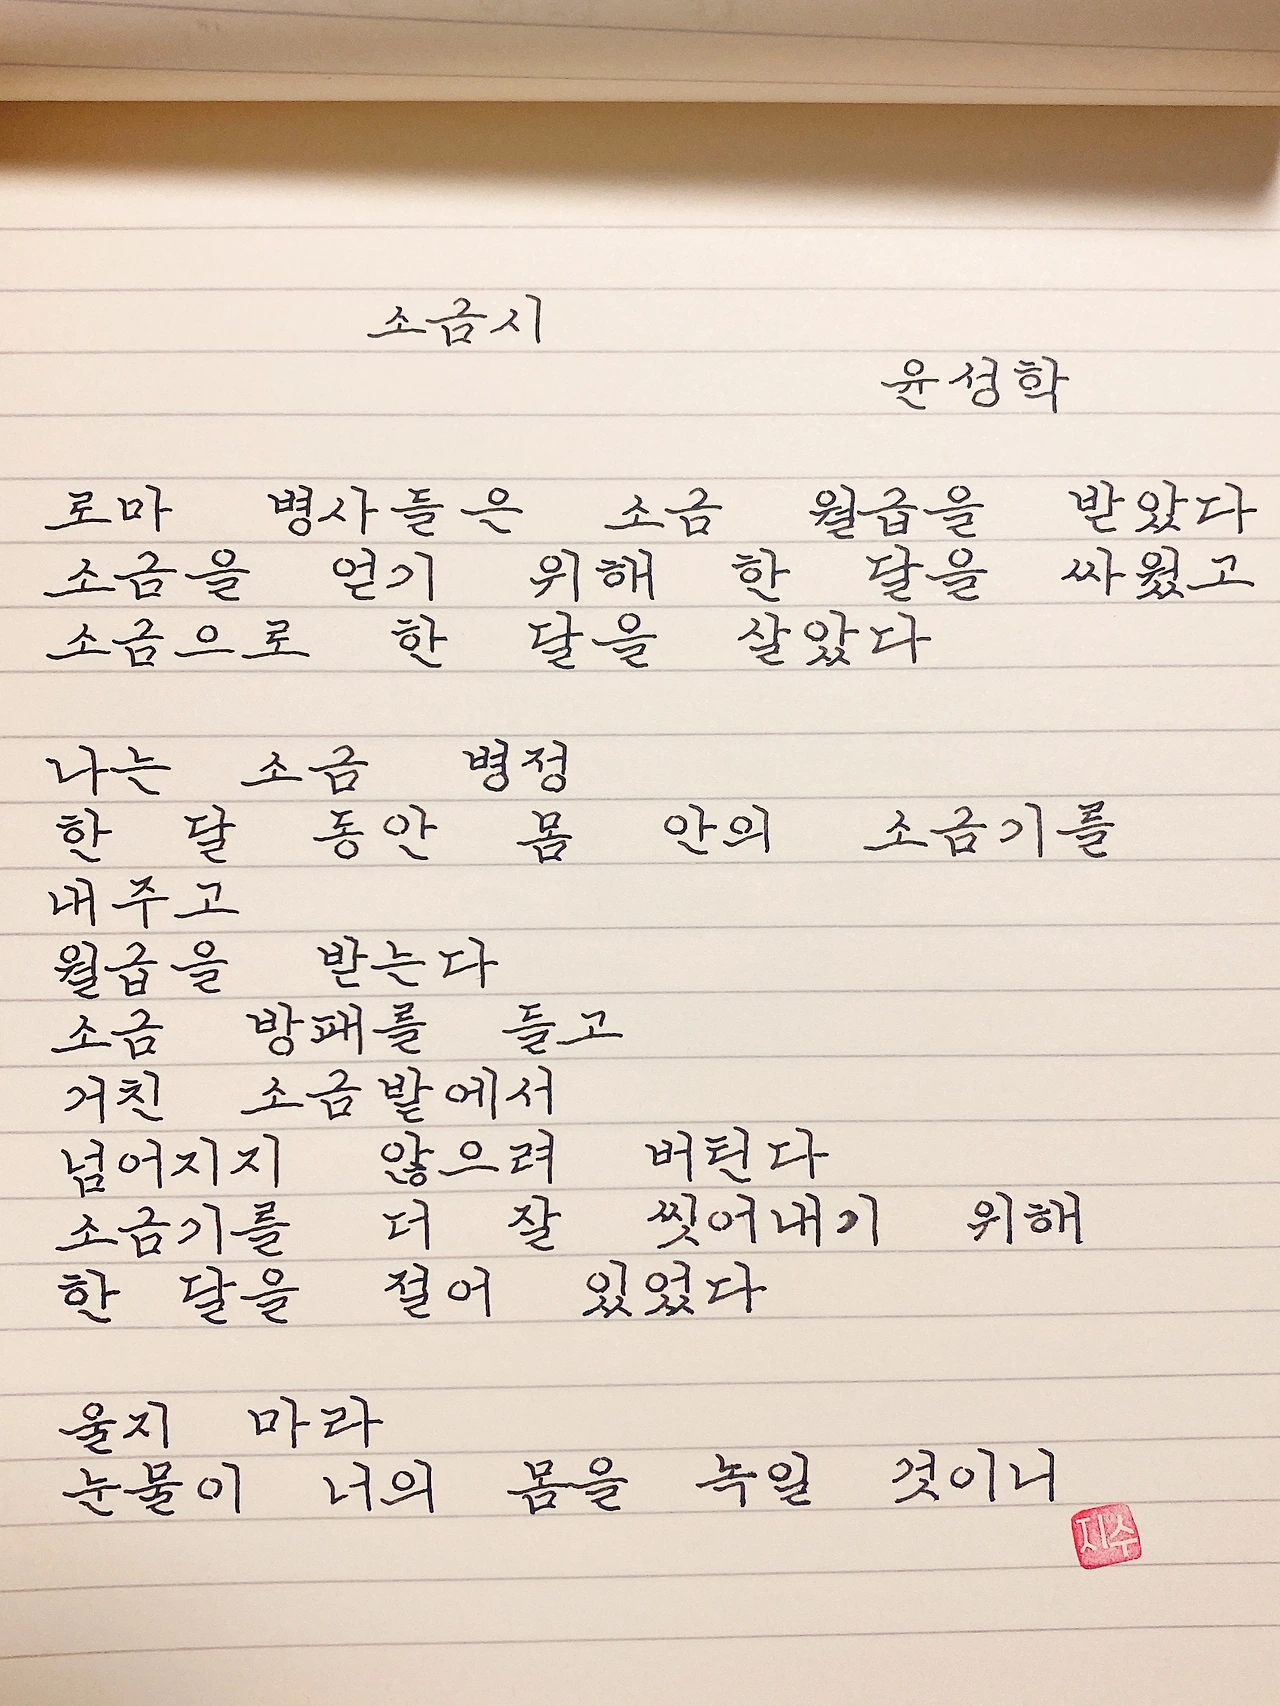 소금시
윤성학
로마 병사들은 소금 월급을 받았다
소금을 얻기 위해 한 달을 싸웠고
소금으로 한 달을 살았다
나는 소금 병정
한 달 동안 몸 안의 소금기를
내주고
월급을 받는다
소금 방패를 들고
거친 소금밭에서
넘어지지 않으려 버틴다
소금기를 더 잘 씻어내기 위해
한 달을 절어 있었다
울지 마라
눈물이 너의 몸을 녹일 것이니
지수